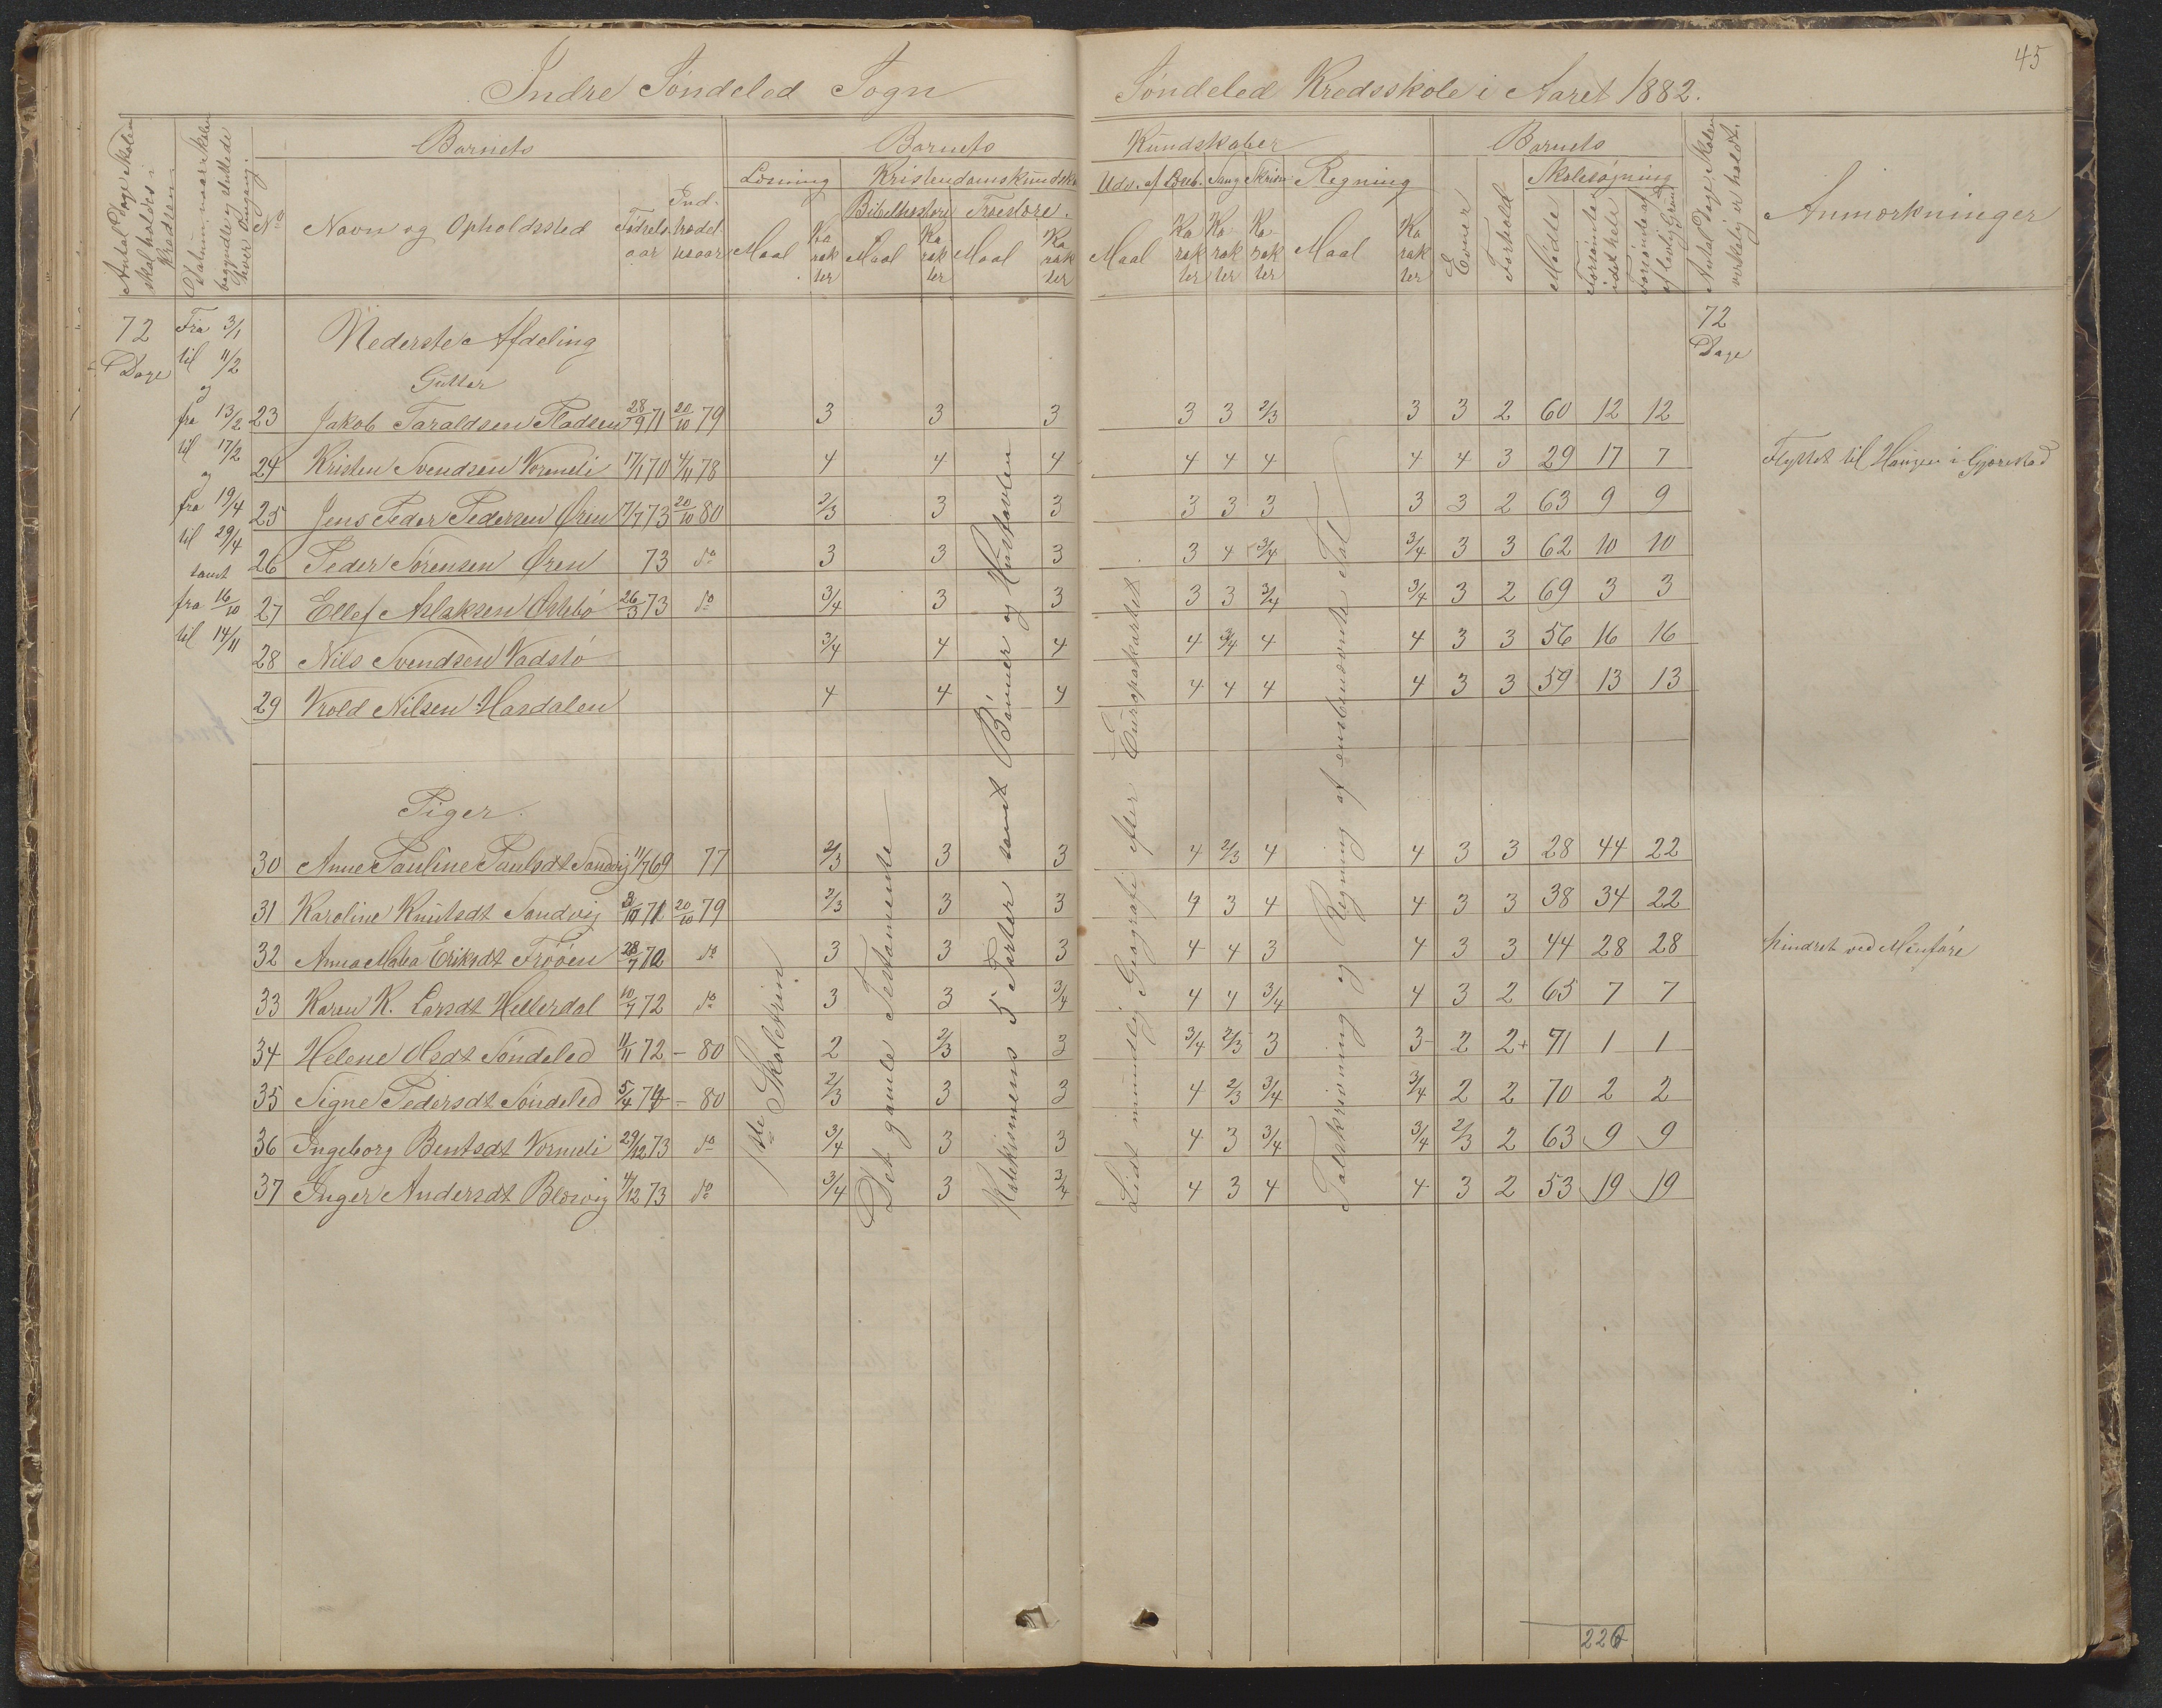 45
Indre Søndeled Sogn Søndeled Kredsskole i Aaret 1882.
Antal Dage Skolen skal holdes i Kredsen
Datum, naar Skolen begyndte og sluttede hver Omgang.
Barnets
No
Navn og Opholdssted
Fødselsaar
Indtrædelsesaar
Barnets Kundskaber
Læsning
Maal Karakter
Kristendomskundskab
Bibelhistorie
Maal Karakter
Troeslære.
Maal Karakter
Udv. af Læseb.
Maal Karakter
Sang
Karakter
Skrivn
Karakter
Regning
Maal Karakter
Barnets
Evner
Forhold
Skolesøgning
Mødte
Forsømte i det hele
Forsømte af lovlig Grund
Antal Dage Skolen virkelig er holdt.
Anmærkninger
72 Dage
Fra 3/1
til 11/2
og
fra 13/2
til 17/2
og
fra 19/4
til 29/4
samt
fra 16/10
til 14/11
72 Dage
Nederste Afdeling
Gutter
23 Jakob Taraldsen Pladsen 28/9 71 20/10 79 3 3 3 3 3 2/3 3 3 2 60 12 12
24 Kristen Svendsen Vormeli 17/1 70 4/11 78 4 4 4 4 4 4 4 4 3 29 17 7 Flyttet til Haugen i Gjerestad
25 Jens Peder Pedersen Øren 17/7 73 20/10 80 2/3 3 3 3 3 3 3 3 2 63 9 9
26 Peder Sørensen Øren 73 do 3 3 3 3 4 3/4 3/4 3 3 62 10 10
27 Ellef Aslaksen Østebø 26/3 73 do 3/4 3 3 3 3 3/4 3/4 3 2 69 3 3
28 Nils Svendsen Vadstø 3/4 4 4 4 3/4 4 4 3 3 56 16 16
29 Krold Nilsen Hasdalen 4 4 4 4 4 4 4 3 3 59 13 13
Piger.
30 Anne Pauline Paulsdt Sandvig 11/7 69 77 2/3 3 3 4 2/3 4 4 3 3 28 44 22
31 Karoline Knutsdt Sandvig 3/10 71 20/10 79 2/3 3 3 4 3 4 4 3 3 38 34 22
32 Anna Maria Eriksdt Frøøen 28/7 72 do 3 3 3 4 4 3 4 3 3 44 28 28 hindret ved Menføre
33 Karen K. Larsdt Hellerdal 10/7 72 do 3 3 3/4 4 4 3/4 4 3 2 65 7 7
34 Helene Olsdt Søndeled 11/11 72 – 80 2 2/3 3 3/4 2/3 3 3- 2 2+ 71 1 1
35 Signe Pedersdt Søndeled 5/4 74 – 80 2/3 3 3 4 2/3 3/4 3/4 2 2 70 2 2
36 Ingeborg Bentsdt Vormeli 29/12 73 do 3/4 3 3 4 3 3/4 3/4 2/3 2 63 9 9
37 Inger Andersdt Blesvig 4/12 73 do 3/4 3 3/4 4 3 4 4 3 2 53 19 19
1ste Skoletrin
Det gamle Testamente
Katekismens 5 Parter samt Bønner og Hustavlen
Lidt mundlig Geografi efter Europakartet
Talskrivning og Regning af ensbenævnte Tal
226